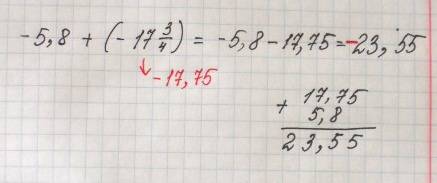 -5,8 + (-17 3/4) = -5,8 - 17,75 = -23,55
↓ -17,75
+ 17,75
5,8
23,55